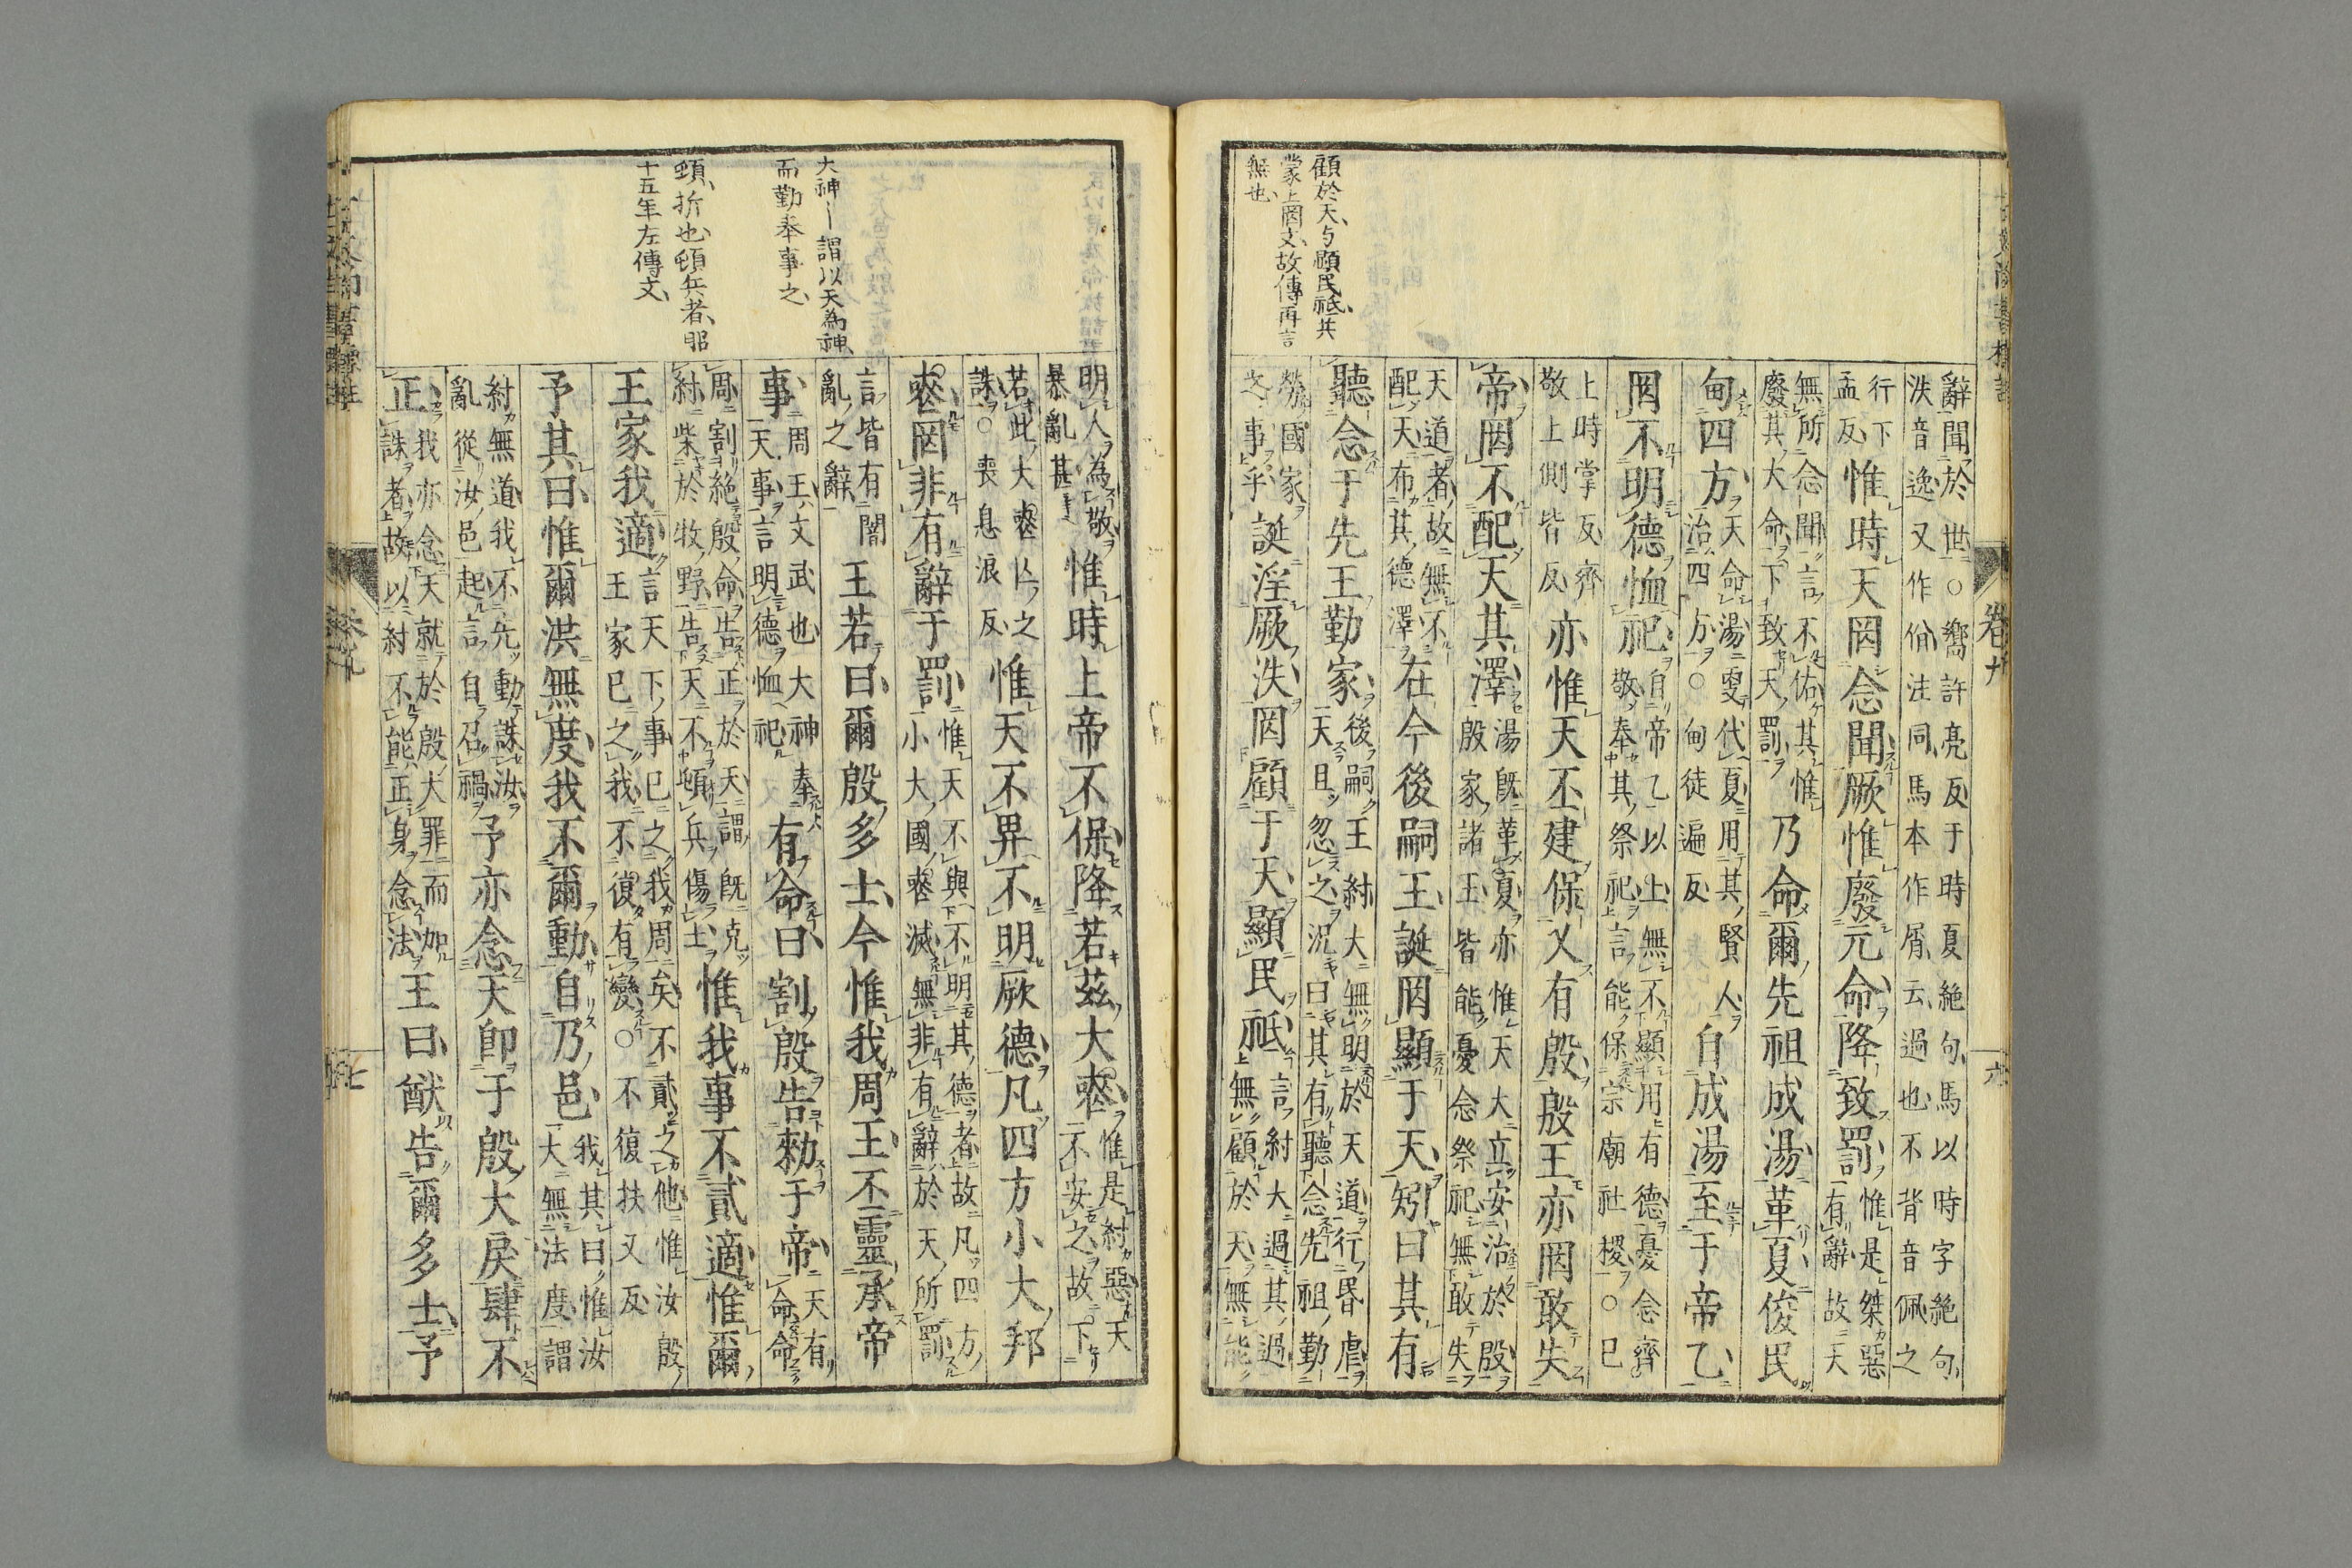 顧於天、与顕民祗、共
蒙上罔文、故傳再言
無也、
辭聞於世○嚮許亮反于時夏絶句馬以時字絶句
泆音逸又作佾注同馬本作屑云過也不背音佩之
行下
孟反
惟時天罔念聞厥惟廢元命降致罰
惟是桀惡
有辭故天
無所念聞言不佑其惟
廢其大命下致天罰
乃命爾先祖成湯革夏俊民
甸四方
天命湯更代夏用其賢人
治四方○甸徒遍反
自成湯至于帝乙
罔不明德恤祀
自帝乙以上無不顯用有德憂念齊
敬奉其祭祀言能保宗廟社稷○已
上時掌反齊
敬上側皆反
亦惟天丕建保乂有殷殷王亦罔敢失
帝罔不配天其澤
湯既革夏亦惟天大立安治於殷
殷家諸王皆能憂念祭祀無敢失
天道者故無不
配天布其德澤
在今後嗣王誕罔顯于天矧曰其有
聽念于先王勤家
後嗣王紂大無明於天道行昬虐
天且忽之況曰其有聽念先祖勤
勞國家
之事乎
誕淫厥泆罔顧于天顯民祗
言紂大過其過
無顧於天無能
大神—謂以天為神、
而勤奉事之、
頓折也、頓兵者、昭
十五年左傳文、
明人為敬
暴亂甚
惟時上帝不保降若茲大喪
惟是紂惡天
不安之故下
若此大喪亾之
誅○喪息浪反
惟天不畀不明厥德凡四方小大邦
喪罔非有辭于罰
惟天不與不明其德者故凡四方
小大國喪滅無非有辭於天所罰
言皆有闇
亂之辭
王若曰爾殷多士今惟我周王丕靈承帝
事
周王文武也大神奉
天事言明德恤祀
有命曰割殷告勑于帝
天有
命命
周割絶殷命告正於天謂既克
紂柴於牧野告天不頓兵傷士
惟我事不貳適惟爾
王家我適
言天下事已之我周矣不貳之他惟汝殷
王家已之我不復有變○不復扶又反
予其曰惟爾洪無度我不爾動自乃邑
我其曰惟汝
大無法度謂
紂無道我不先動誅汝
亂從汝邑起言自召禍
予亦念天卽于殷大戾肆不
正
我亦念天就於殷大罪而加
誅者故以紂不能正身念法
王曰猷告爾多士予